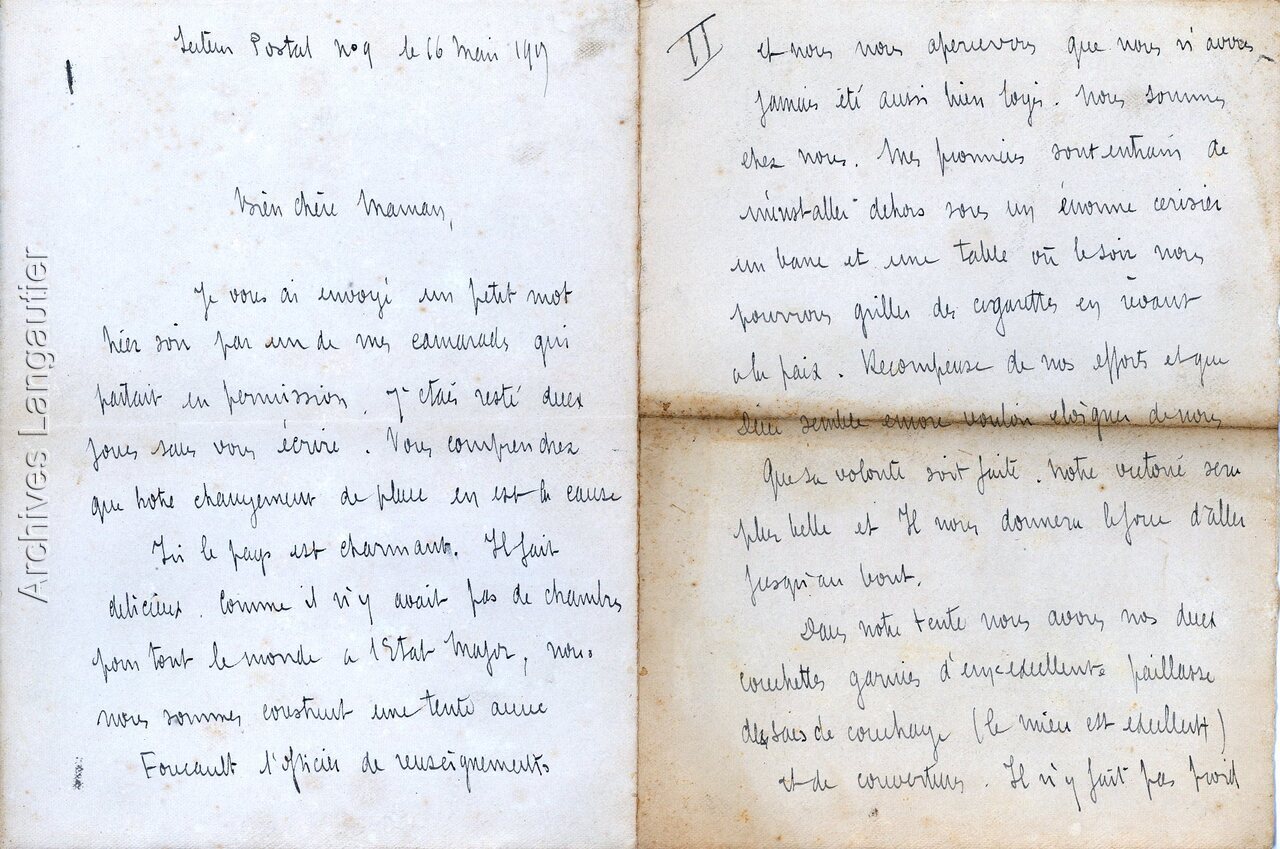 Archives Langautier
I
Secteur Postal n°9 le 16 Mai 1917
Bien chère Maman,
Je vous ai envoyé un petit mot
hier soir par un de mes camarads qui
partait en permission. J'étais resté deux
jours sans vous écrire. Vous comprendrez
que notre changement de place en est la cause
Ici le pays est charmant. Il fait
délicieux. Comme il n'y avait pas de chambres
pour tout le monde a l'Etat Major, nous
nous sommes construit une tente avec
Foucault l'officier de renseignements
II
et nous nous apercevons que nous n'avons
jamais été aussi bien logés. Nous sommes
chez nous. Mes pionniers sont entrain de
m'installer dehors sous un énorme cerisier
un banc et une table où le soir nous
pourrons griller des cigarettes en rêvant
a la paix. Recompense de nos efforts et que
Dieu semble encore vouloir eloigner de nous
Que sa volonté soit faite. Notre victoire sera
plus belle et Il nous donnera la force d'aller
jusqu'au bout.
Dans notre tente nous avons nos deux
couchettes garnies d'excellente paillasse
de sacs de couchage (le mien est excellent)
et de couvertures. Il n'y fait pas froid